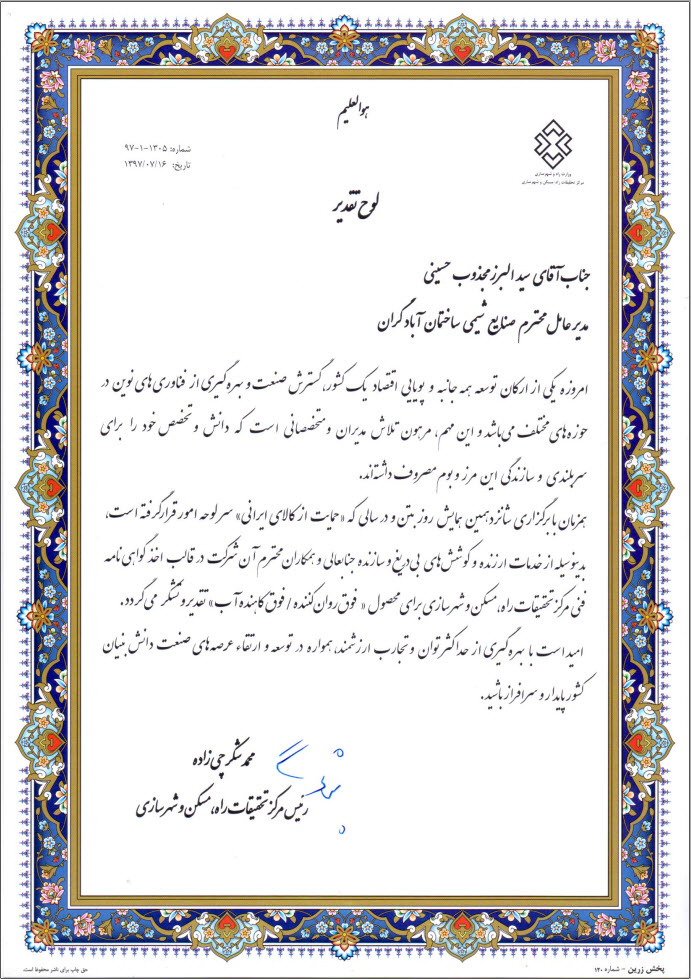 هوالعلیم
شماره: ۱۳۰۵-۱-۹۷
تاریخ: ۱۳۹۷/۰۷/۱۶
وزارت راه و شهرسازی
مرکز تحقیقات راه، مسکن و شهرسازی
لوح تقدیر
جناب آقای سید البرز مجذوب حسینی
مدیرعامل محترم صنایع شیمی ساختمان آبادگران
امروزه یکی از ارکان توسعه همه جانبه و پویایی اقتصاد یک کشور، گسترش صنعت و بهره گیری از فناوری های نوین در
حوزه های مختلف می باشد و این مهم، مرهون تلاش مدیران و متخصصانی است که دانش و تخصص خود را برای
سربلندی و سازندگی این مرز و بوم مصروف داشته اند.
همزمان با برگزاری شانزدهمین همایش روز بتن و در سالی که «حمایت از کالای ایرانی» سرلوحه امور قرار گرفته است،
بدینوسیله از خدمات ارزنده و کوشش های بی دریغ و سازنده جنابعالی و همکاران محترم آن شرکت در قالب اخذ گواهی نامه
فنی مرکز تحقیقات راه، مسکن و شهرسازی برای محصول « فوق روان کننده / فوق کاهنده آب» تقدیر و تشکر می گردد.
امید است با بهره گیری از حداکثر توان و تجارب ارزشمند، همواره در توسعه و ارتقاء عرصه های صنعت دانش بنیان
کشور پایدار و سرافراز باشید.
محمد شکرچی زاده
رئیس مرکز تحقیقات راه، مسکن و شهرسازی
پخش زرین - شماره ۱۲۰
حق چاپ برای ناشر محفوظ است.